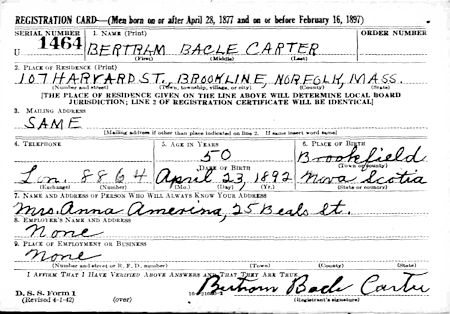 REGISTRATION CARD—(Men born on or after April 28, 1877 and on or before February 16, 1897)
SERIAL NUMBER 1. NAME (Print) ORDER NUMBER
U 1464 BERTRAM BACLE CARTER
(First) (Middle) (Last)
2. PLACE OF RESIDENCE (Print)
107 HARVARD ST., BROOKLINE, NORFOLK, MASS.
(Number and street) (Town, township, village, or city) (County) (State)
[THE PLACE OF RESIDENCE GIVEN ON THE LINE ABOVE WILL DETERMINE LOCAL BOARD
JURISDICTION; LINE 2 OF REGISTRATION CERTIFICATE WILL BE IDENTICAL]
3. MAILING ADDRESS
SAME
[Mailing address if other than place indicated on line 2. If same insert word same]
4. TELEPHONE 5. AGE IN YEARS 6. PLACE OF BIRTH
50 Brookfield
DATE OF BIRTH (Town or county)
Lon. 8864 April 23, 1892 Nova Scotia
(Exchange) (Number) (Mo.) (Day) (Yr.) (State or country)
7. NAME AND ADDRESS OF PERSON WHO WILL ALWAYS KNOW YOUR ADDRESS
Mrs. Anna Amerina, 25 Beals St.
8. EMPLOYER'S NAME AND ADDRESS
None
9. PLACE OF EMPLOYMENT OR BUSINESS
None
(Number and street or R. F. D. number) (Town) (County) (State)
I AFFIRM THAT I HAVE VERIFIED ABOVE ANSWERS AND THAT THEY ARE TRUE.
D. S. S. Form 1 Bertram Bacle Carter
(Revised 4-1-42) (over) (Registrant's signature)